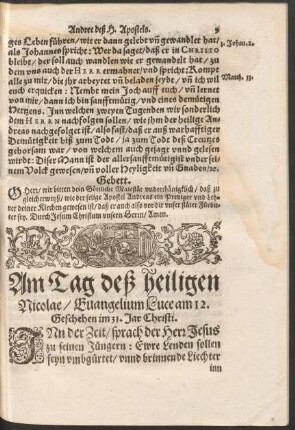 Andree deß H. Apostels. 9
ges Leben führen/ wie er dann gelebt vñ gewandlet hat/
als Johannes spricht: Wer da saget/ daß er in CHRISTO
bleibt/ der soll auch wandlen wie er gewandelt hat/ zu
1. Johan. 2.
dem vns auch der HERR ermahnet/ vnd spricht: Kompt
alle zu mir/ die jhr arbeytet vñ beladen seyde/ vñ ich wil
Matth. 11.
euch erquicken: Nembt mein Joch auff euch/ vñ lernet
von mir/ dann ich bin sanfftmütig/ vnd eines demütigen
Hertzens. Inn welchen zweyen Tugenden wir sonderlich
dem HERRN nachfolgen sollen/ wie jhm der heilige An-
dreas nachgefolget ist/ also fast/ daß er auß warhafftiger
Demütigkeit biß zum Todt/ ja zum Todt deß Creutzes
gehorsam war/ von welchem auch gesagt vnnd gelesen
wirdt: Diser Mann ist der allersanfftmütigist vnder sei-
nem Volck gewesen/ vñ voller Heyligkeit vñ Gnaden/ ꝛc.
Gebett.
O Herr/ wir bitten dein Göttliche Maiestät vnderthänigklich/ daß zu
gleicherweyß/ wie der selige Apostel Andreas ein Prediger vnd Leh-
rer deiner Kirchen gewesen ist/ daß er auch also vor dir vnser stäter Fürbit-
ter sey. Durch Jesum Christum vnsern Herrn/ Amen.
Am Tag deß heiligen
Nicolae/ Euangelium Luce am 12.
Geschehen im 31. Jar Christi.
IN der Zeit/ sprach der Herr Jesus
zu seinen Jüngern: Ewre Lenden sollen
seyn vmbgürtet/ vnnd brinnende Liechter
inn